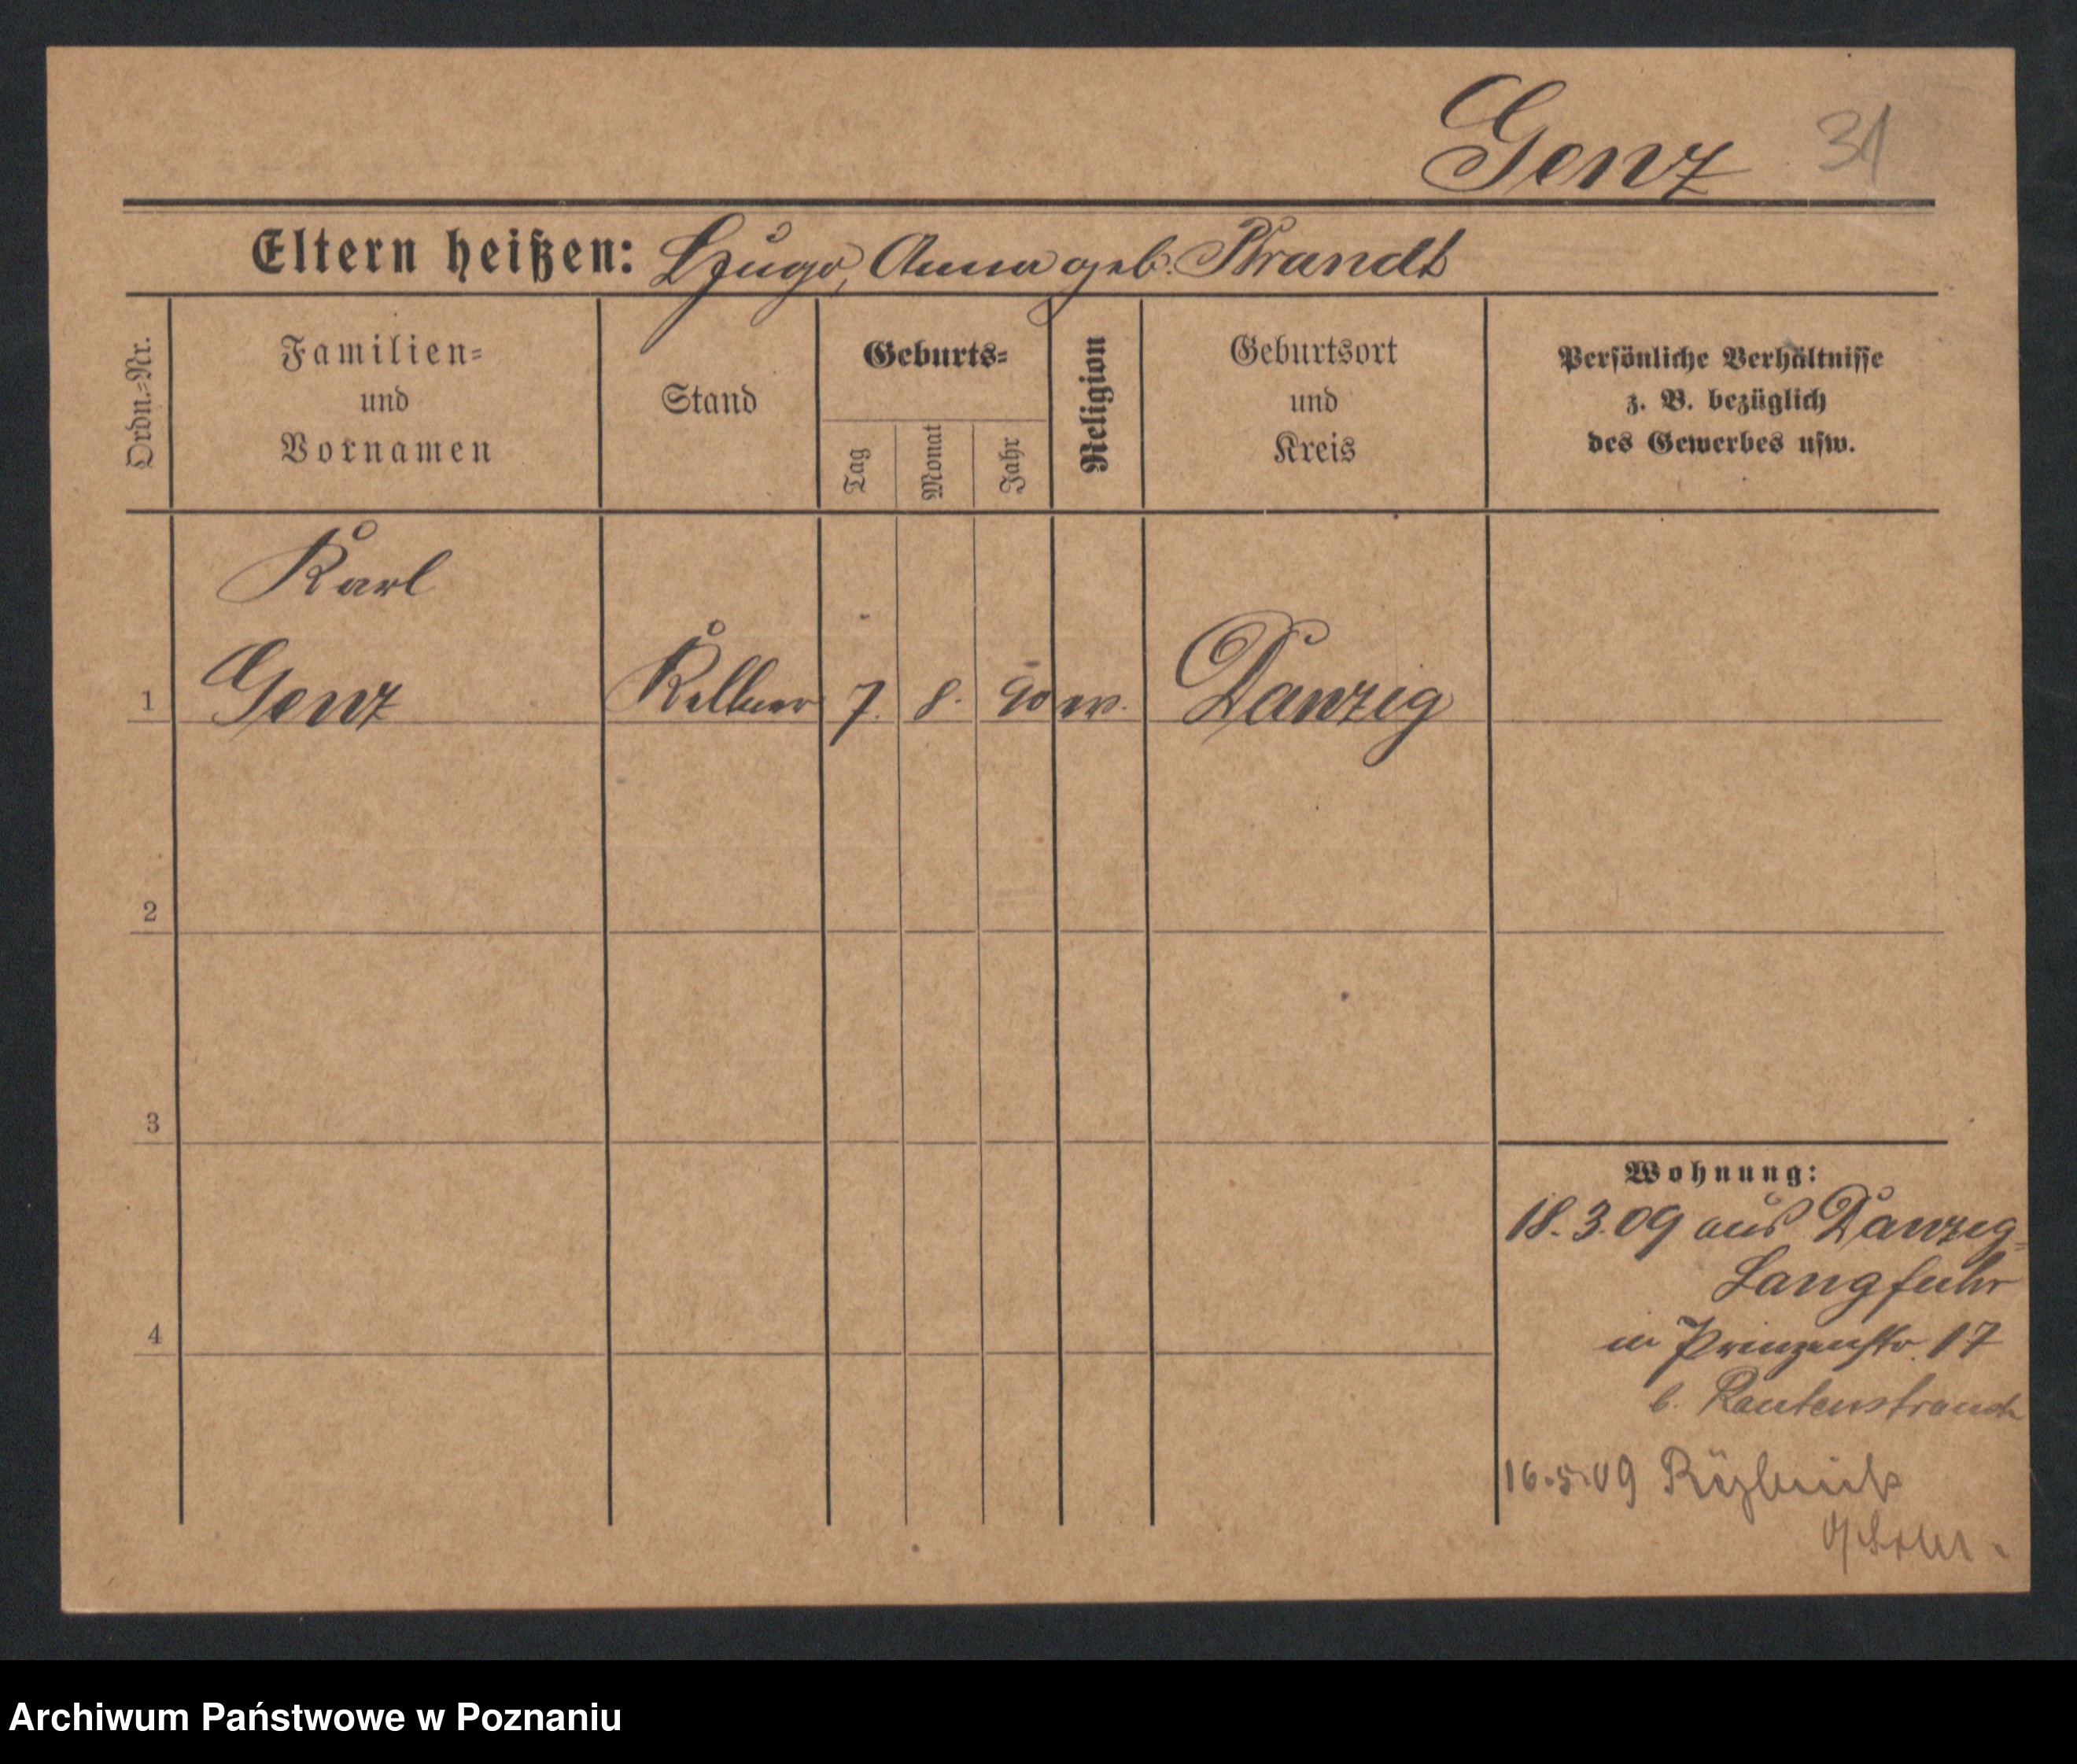 Genz 31
Eltern heißen: Hugo, Anna geb. Brandt
Ordn.=Nr.
Familien=
und
Vornamen
Stand
Geburts=
Tag
Monat
Jahr
Religion
Geburtsort
und
Kreis
Persönliche Verhältnisse
z. B. bezüglich
des Gewerbes usw.
Karl
1 Genz Kellner 7. 8. 90 ev. Danzig
2
3
4
Wohnung:
18.3.09 aus Danzig=
Langfuhr
in Prinzenstr. 17
b. Rautenstrauch
16.5.09 Rybnik
Archiwum Państwowe w Poznaniu